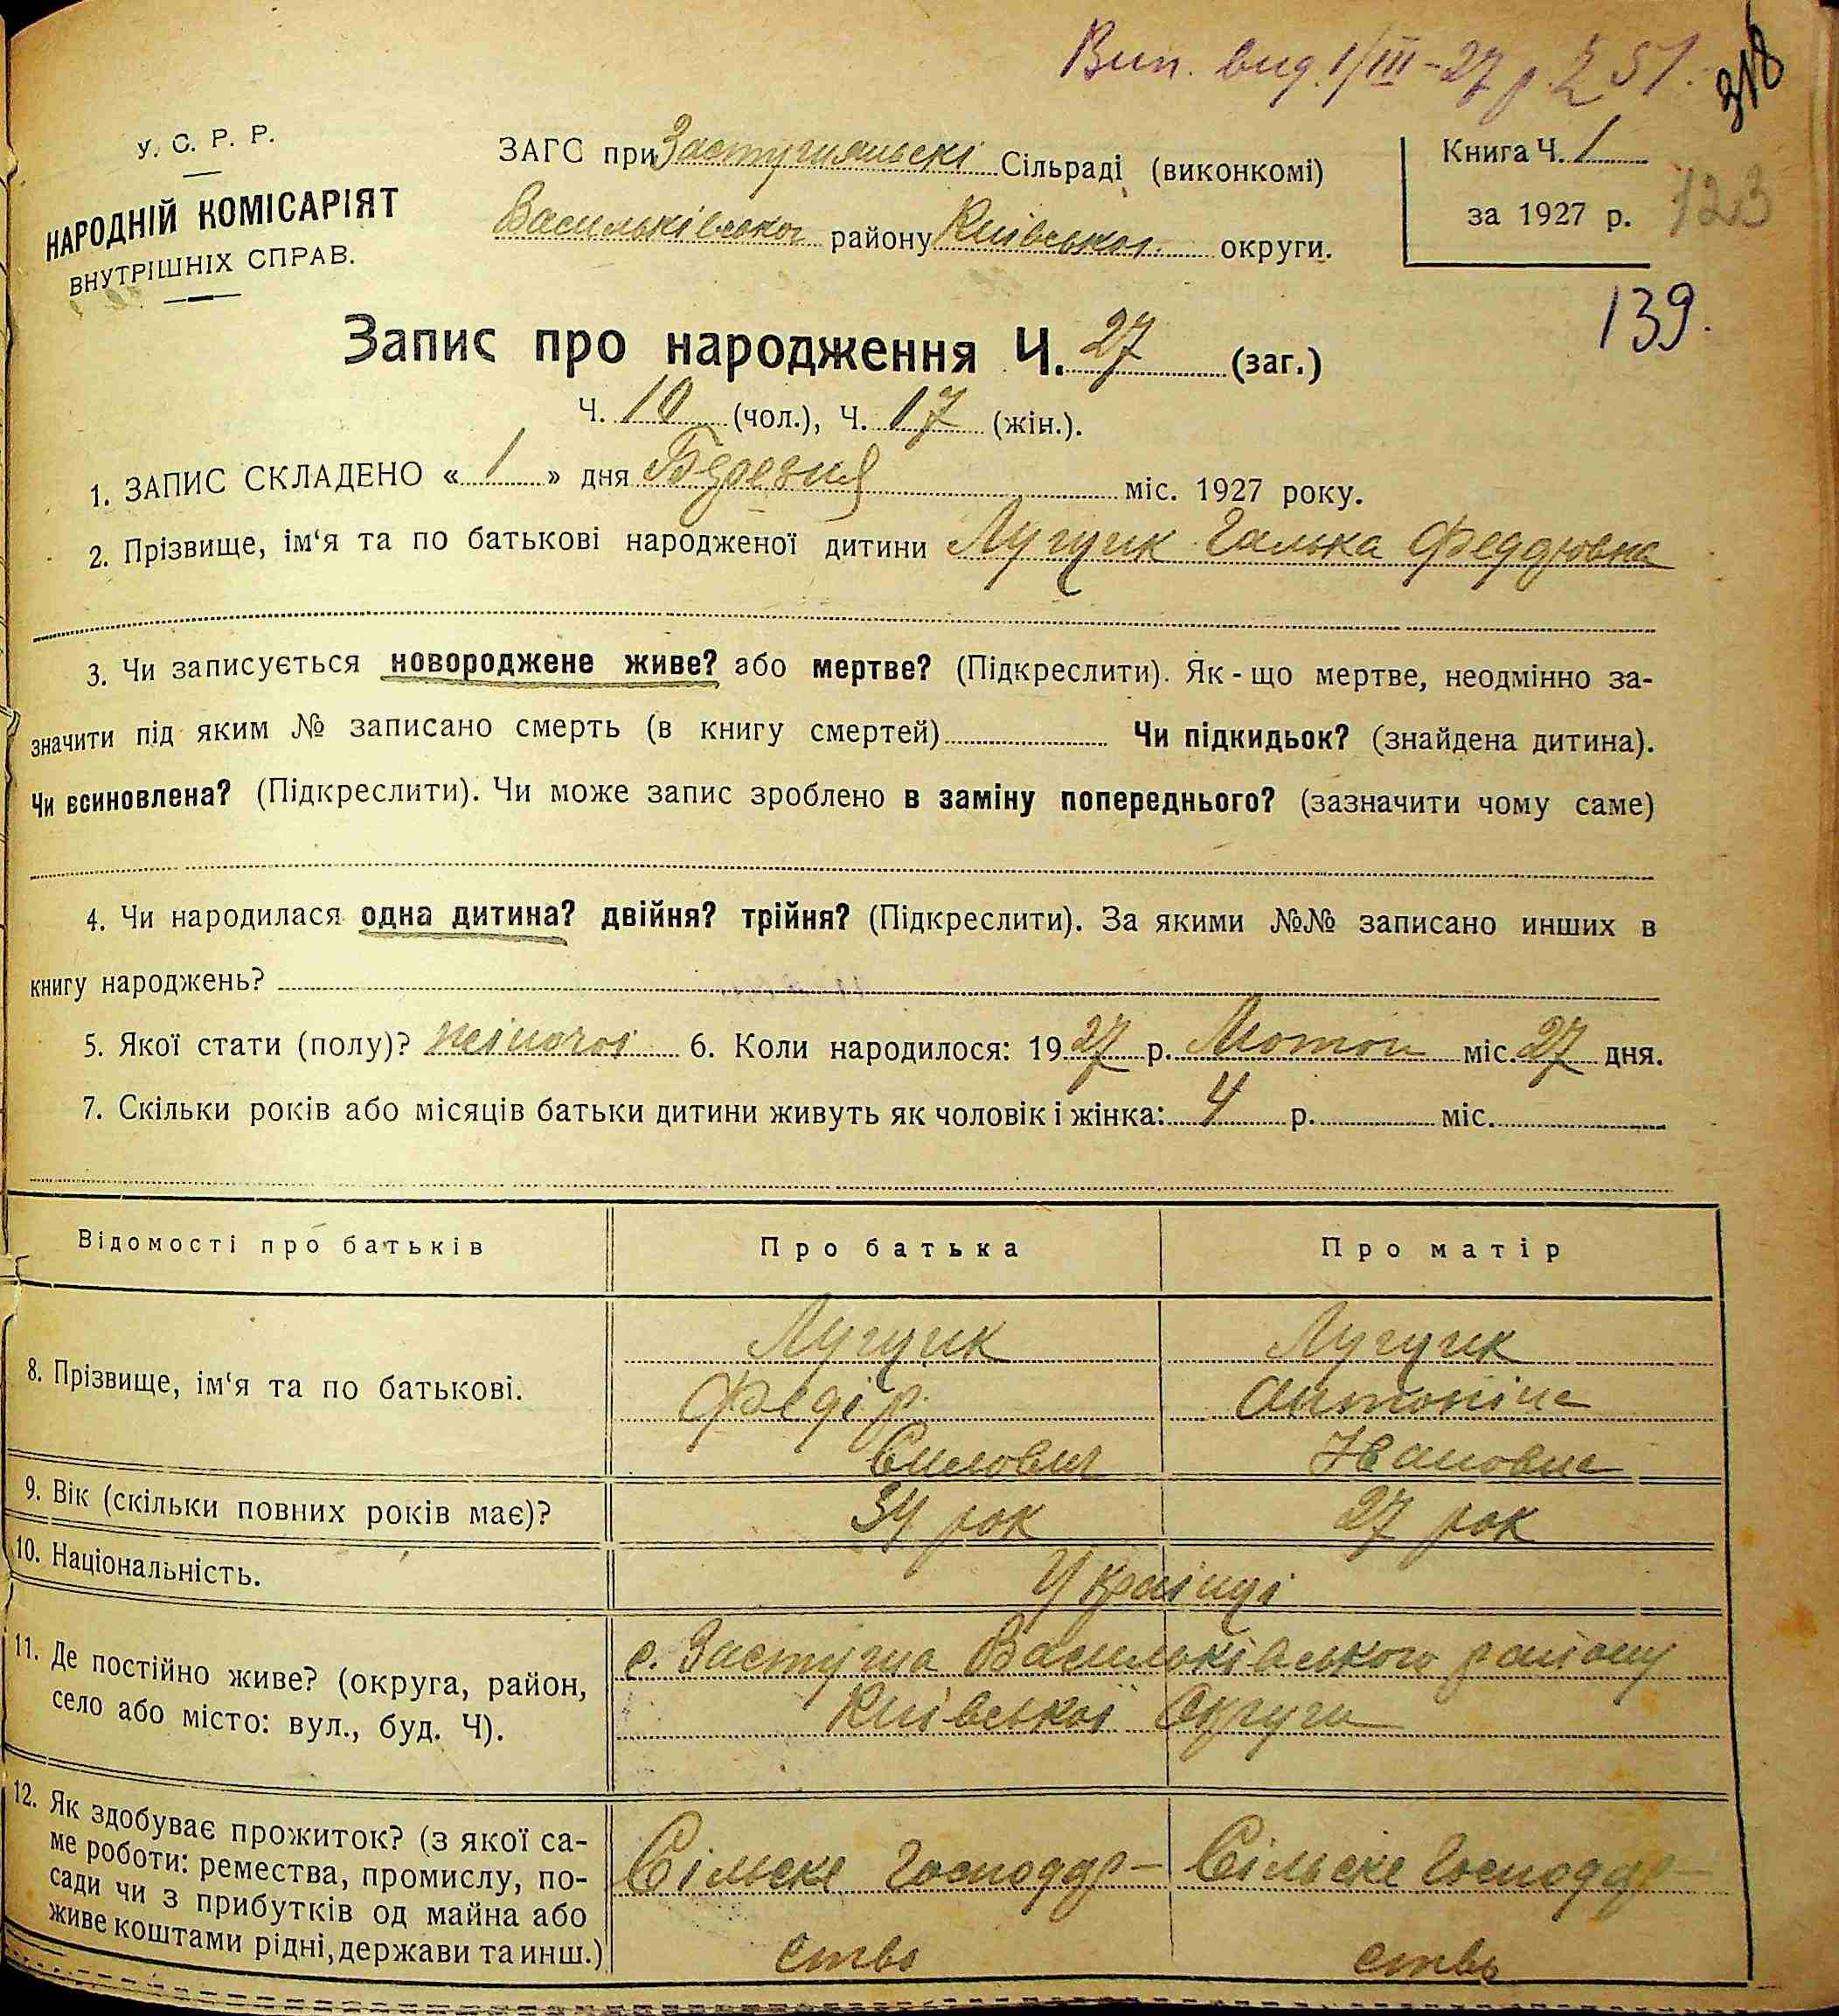 Вип. вид. 1/III-27 р. 51.
318
У. С. Р. Р.
НАРОДНІЙ КОМІСАРІЯТ
ВНУТРІШНІХ СПРАВ.
ЗАГС при Застугняньскі Сільраді (виконкомі)
Васильківського району Київської округи.
Книга Ч. 1
за 1927 р.
123
139.
Запис про народження Ч. 27 (заг.)
Ч. 10 (чол.), Ч. 17 (жін.).
1. ЗАПИС СКЛАДЕНО « 1 » дня Березня міс. 1927 року.
2. Прізвище, ім‘я та по батькові народженої дитини Лущик Галька
3. Чи записується новороджене живе? або мертве? (Підкреслити). Як-що мертве, неодмінно за-
значити під яким № записано смерть (в книгу смертей) Чи підкидьок? (знайдена дитина).
Чи всиновлена? (Підкреслити). Чи може запис зроблено в заміну попереднього? (зазначити чому саме)
4. Чи народилася одна дитина? двійня? трійня? (Підкреслити). За якими №№ записано инших в
книгу народжень?
5. Якої стати (полу)? жіночої 6. Коли народилося: 1927 р. Лютого міс. 27 дня.
7. Скільки років або місяців батьки дитини живуть як чоловік і жінка: 4 р. міс.
Відомості про батьків Про батька Про матір
8. Прізвище, ім‘я та по батькові.
Лущик Лущик
Федір Антоніна
Силович Івановна
9. Вік (скільки повних років має)? 34 рок 27 рок
10. Національність. Українці
11. Де постійно живе? (округа, район,
село або місто: вул., буд. Ч).
с. Застугна Васильківського району
Київської Округи
12. Як здобуває прожиток? (з якої са-
ме роботи: ремества, промислу, по-
сади чи з прибутків од майна або
живе коштами рідні, держави та инш.)
Сільске Господар- Сільске Господар-
ство ство